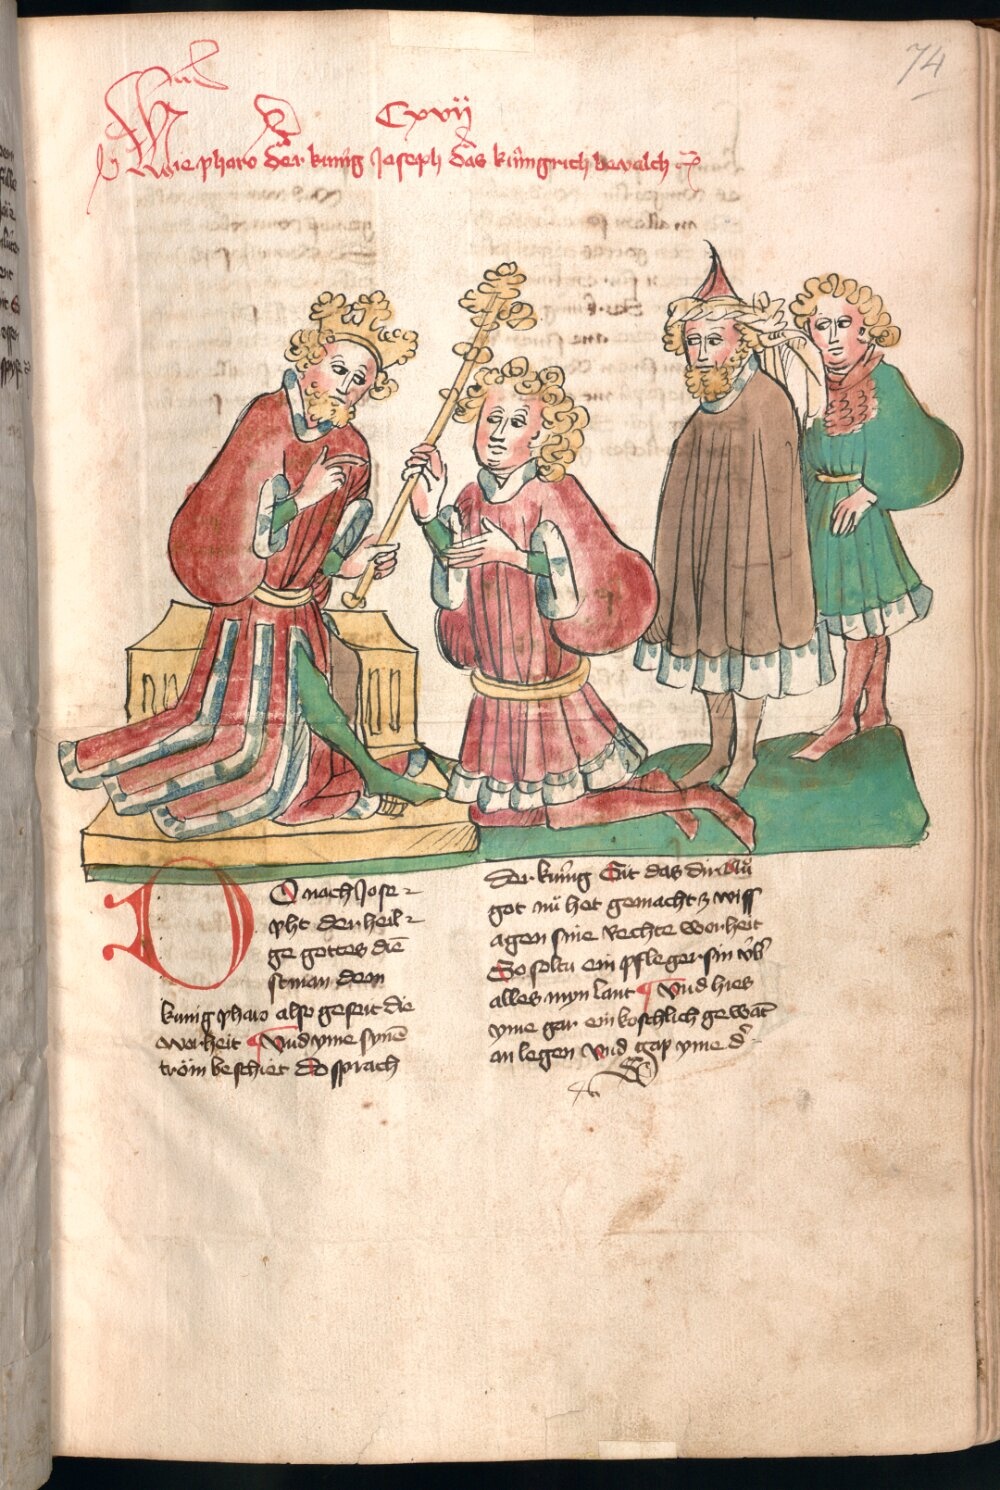 74
Cxvij
Wie pharo der kunig Joseph das kungrich bevalch
DO nach Jose
pht der heil
ge gottes die
stman dem
kunig pharo also geseit die
worheit Vnd yme synē
tröm beschiet do sprach
der kunig Sit das dir
got nů het gemacht wiss
agen sine rechte worheit
So soltu ein pfleger sin vb'
alles myn lant Vnd hies
yme gar ein koschlich gewāt
an legen vnd gap yme d'